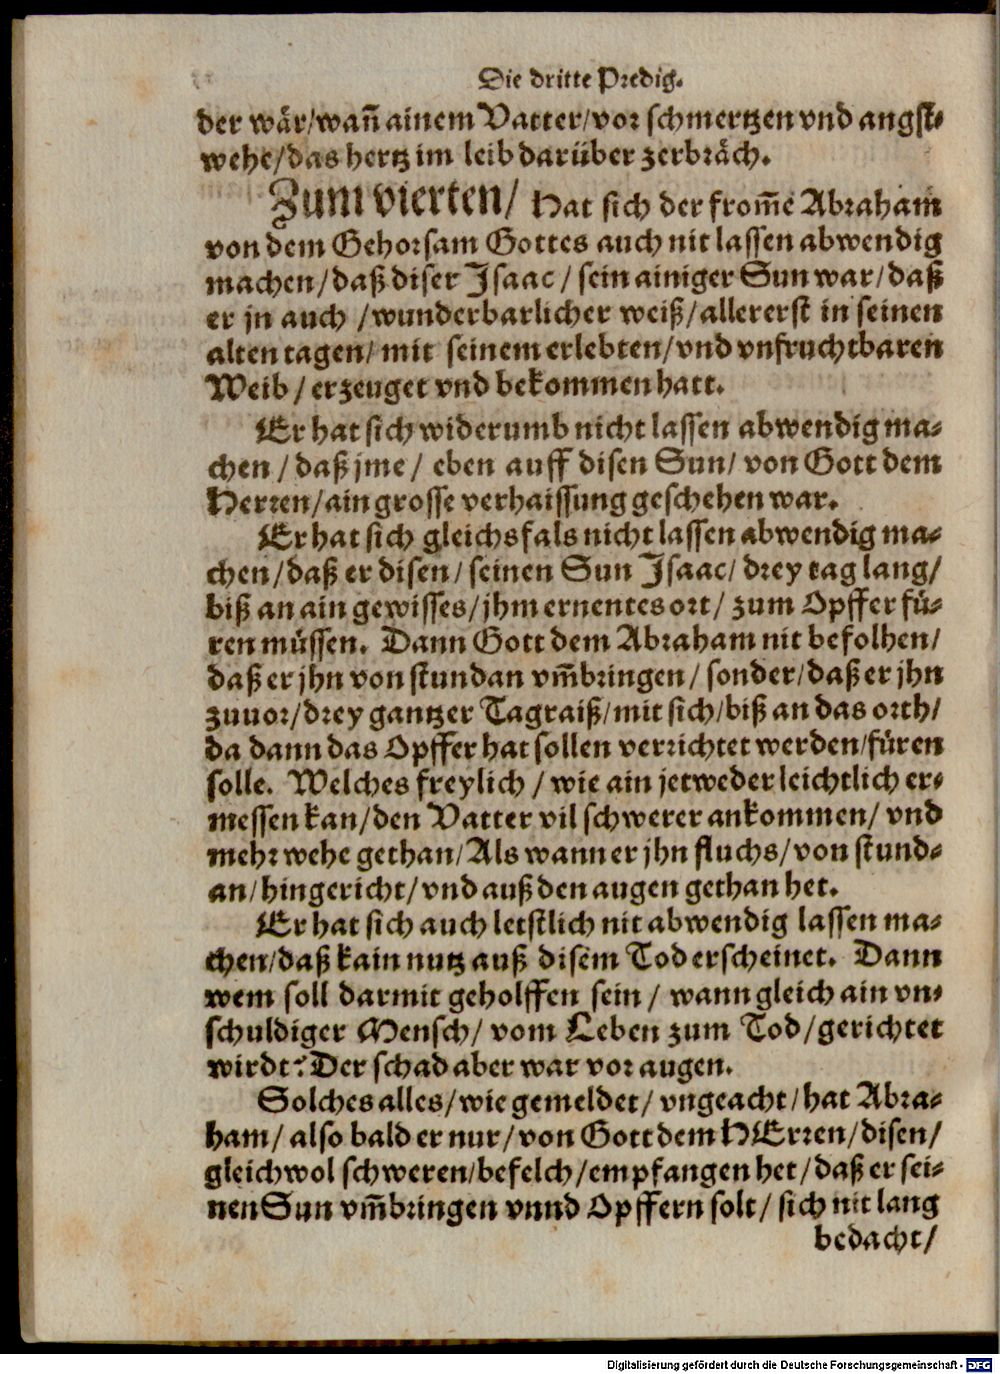 Die dritte Predig.
der wär/wañ ainem Vatter/vor schmertzen vnd angst-
wehe/das hertz im leib darüber zerbräch.
Zum vierten/ Hat sich der from̃e Abraham
von dem Gehorsam Gottes auch nit lassen abwendig
machen/daß diser Isaac/ sein ainiger Sun war/daß
er jn auch /wunderbarlicher weiß/allererst in seinen
alten tagen/ mit seinem erlebten/vnd vnfruchtbaren
Weib / erzeuget vnd bekommen hatt.
Er hat sich widerumb nicht lassen abwendig ma-
chen / daß jme / eben auff disen Sun/ von Gott dem
Herren/ain grosse verhaissung geschehen war.
Er hat sich gleichsfals nicht lassen abwendig ma-
chen/daß er disen/ seinen Sun Isaac/ drey tag lang/
biß an ain gewisses/jhm ernentes ort/ zum Opffer fü-
ren müssen. Dann Gott dem Abraham nit befolhen/
daß er jhn von stundan vm̃bringen/ sonder/daß er jhn
zuuor/drey gantzer Tagraiß/mit sich/biß an das orth/
da dann das Opffer hat sollen verrichtet werden/füren
solle. Welches freylich / wie ain jetweder leichtlich er-
messen kan/den Vatter vil schwerer ankommen/ vnd
mehr wehe gethan/Als wann er jhn fluchs/von stund-
an/hingericht/vnd auß den augen gethan het.
Er hat sich auch letstlich nit abwendig lassen ma-
chen/daß kain nutz auß disem Tod erscheinet. Dann
wem soll darmit geholffen sein / wann gleich ain vn-
schuldiger Mensch/ vom Leben zum Tod/gerichtet
wirdt? Der schad aber war vor augen.
Solches alles/wie gemeldet/ vngeacht/hat Abra-
ham/ also bald er nur/von Gott dem HErren/disen/
gleichwol schweren/befelch/empfangen het/daß er sei-
nen Sun vm̃bringen vnnd Opffern solt/ sich nit lang
bedacht/
Digitalisierung gefördert durch die Deutsche Forschungsgemeinschaft - DFG